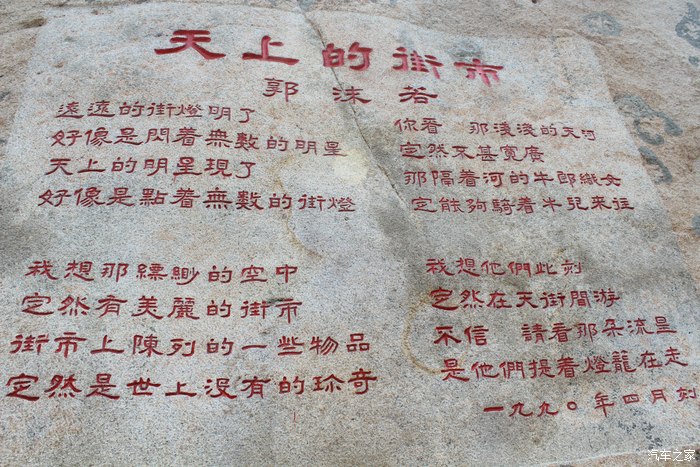 天上的街市
郭沫若
遠遠的街燈明了
好像是閃着無數的明星
天上的明星現了
好像是點着無數的街燈
我想那縹緲的空中
定然有美麗的街市
街市上陳列的一些物品
定然是世上沒有的珍奇
你看 那淺淺的天河
定然不甚寬廣
那隔着河的牛郎織女
定能夠騎着牛兒來往
我想他們此刻
定然在天街閒游
不信 請看那朵流星
是他們提着燈籠在走
一九九〇年四月刻
汽车之家